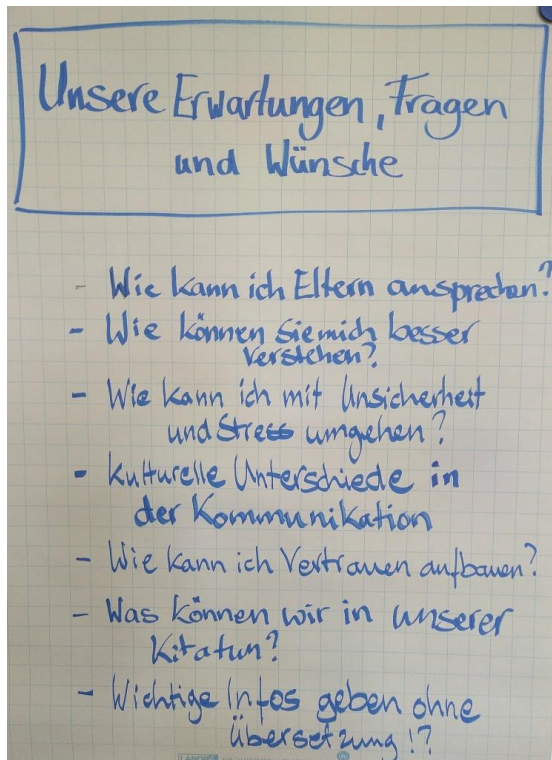 Unsere Erwartungen, Fragen
und Wünsche
- Wie kann ich Eltern ansprechen?
- Wie können Sie mich besser
verstehen?
- Wie kann ich mit Unsicherheit
und Stress umgehen?
- Kulturelle Unterschiede in
der Kommunikation
- Wie kann ich Vertrauen aufbauen?
- Was können wir in unserer
Kita tun?
- Wichtige Infos geben ohne
Übersetzung!?
LANDRÉ